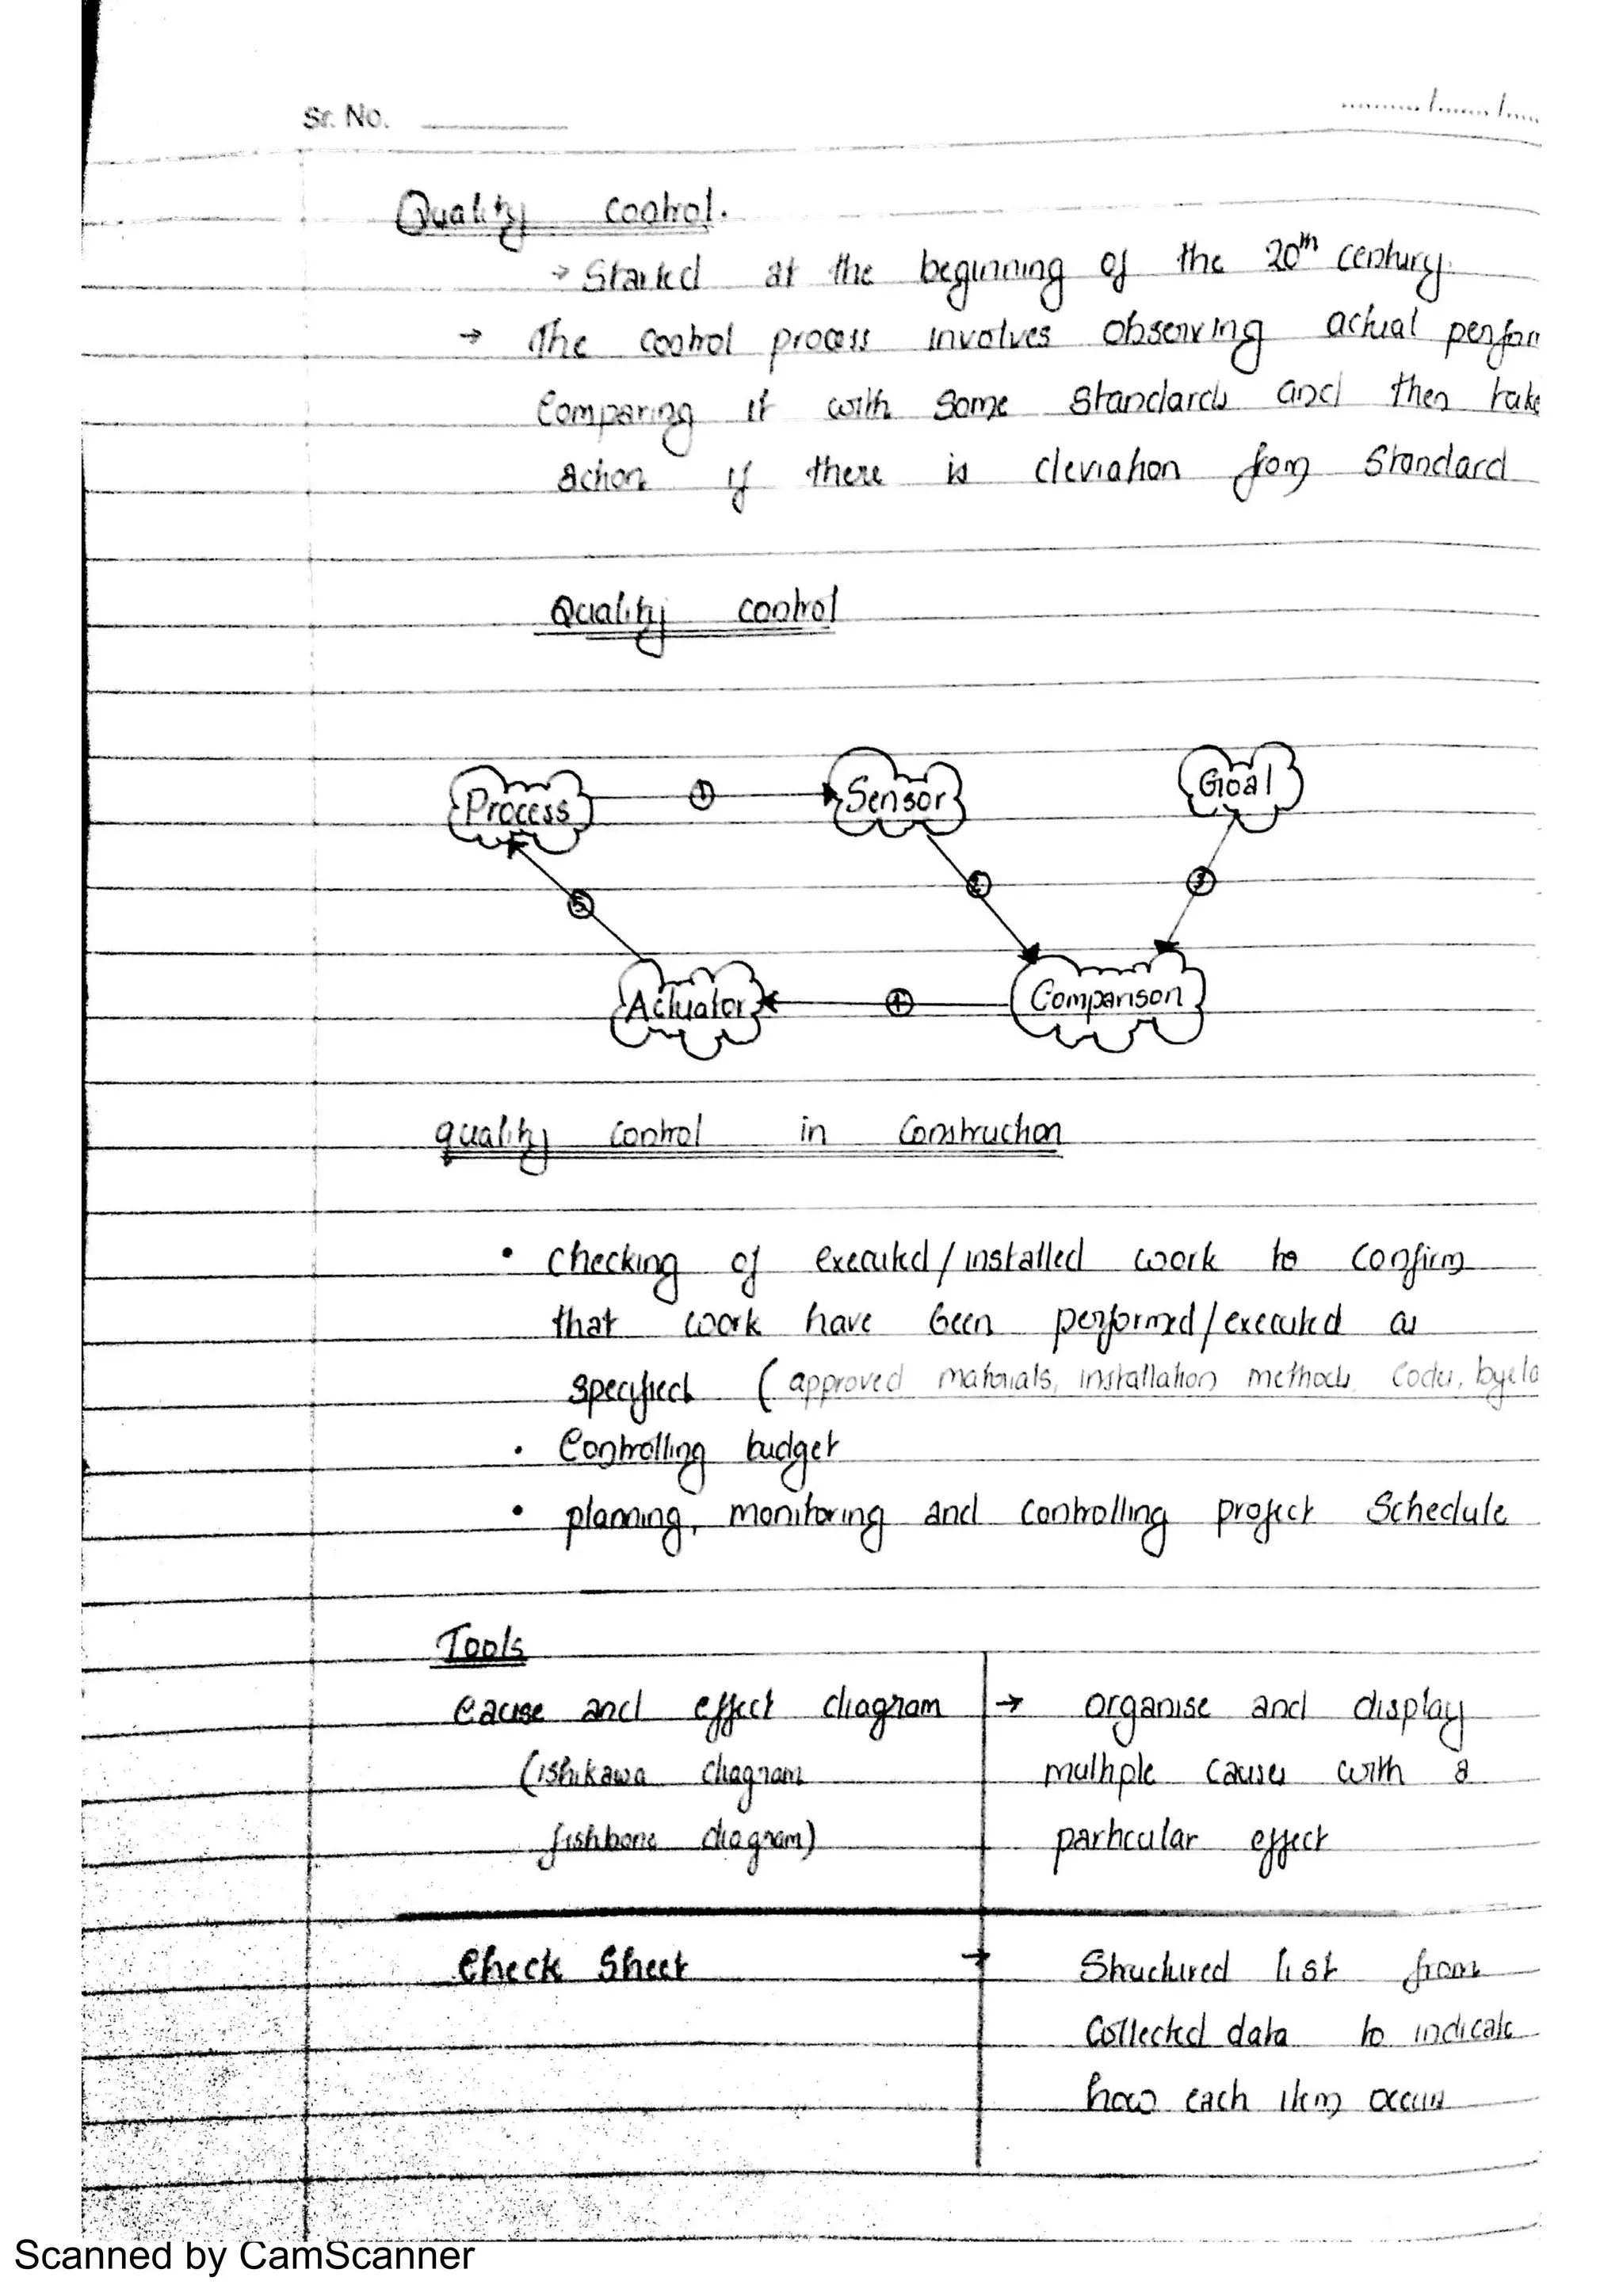 Sr. No.
Quality control.
→ Started at the beginning of the 20th century.
→ The control process involves observing actual perfor
Comparing it with some standards and then take
action if there is deviation from standard
Quality control
Process ① Sensor Goal
② ③
⑤
Actuator ④ Comparison
quality control in Construction
• checking of executed/installed work to confirm
that work have been performed/executed as
specified (approved materials, installation methods, codes, byela
• Controlling budget
• planning, monitoring and controlling project Schedule
Tools
Cause and effect diagram → organise and display
(ishikawa diagram multiple causes with a
fishbone diagram) particular effect
Check Sheet → Structured list from
Collected data to indicate
how each item occurs
Scanned by CamScanner